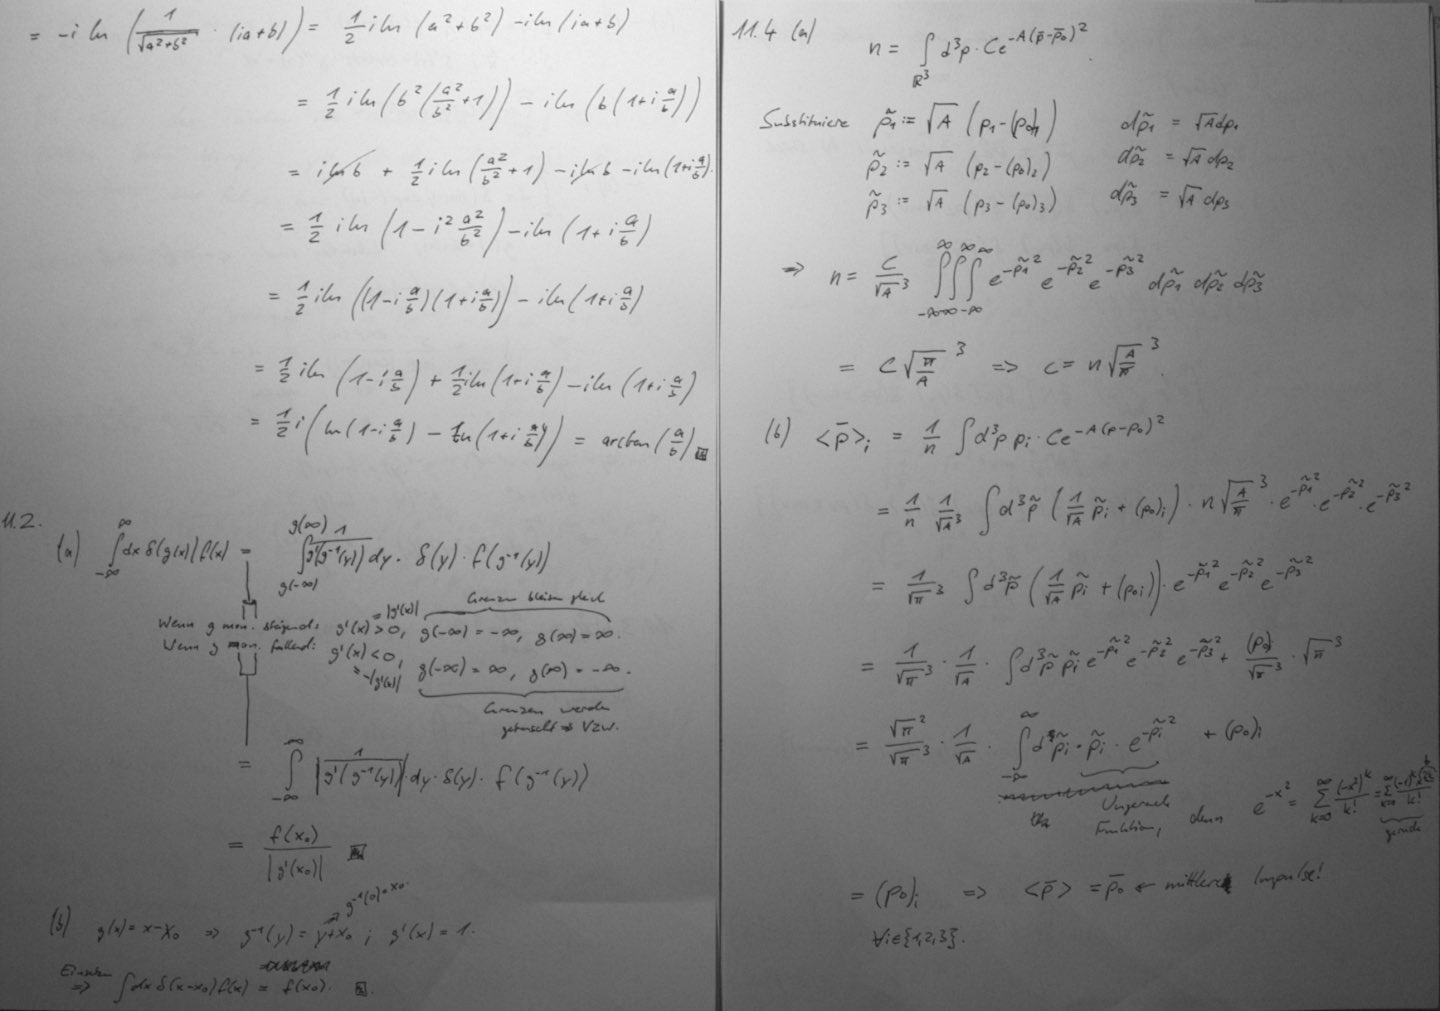 = -i ln (1/√(a²+b²) · (ia+b)) = 1/2 i ln (a²+b²) - i ln (ia+b)
= 1/2 i ln (b² (a²/b² + 1)) - i ln (b (1+i a/b))
= i ln b + 1/2 i ln (a²/b² + 1) - i ln b - i ln (1+i a/b).
= 1/2 i ln (1 - i² a²/b²) - i ln (1 + i a/b)
= 1/2 i ln ((1-i a/b)(1+i a/b)) - i ln (1+i a/b)
= 1/2 i ln (1-i a/b) + 1/2 i ln (1+i a/b) - i ln (1+i a/b)
= 1/2 i (ln (1-i a/b) - ln (1+i a/b)) = arctan (a/b)
11.2.
(a) ∫_{-∞}^{∞} dx δ(g(x)) f(x) = ∫_{g(-∞)}^{g(∞)} 1/g'(g⁻¹(y)) dy · δ(y) · f(g⁻¹(y))
Grenzen bleiben gleich
Wenn g mon. steigend: g'(x) > 0, g(-∞) = -∞, g(∞) = ∞.
= |g'(x)|
Wenn g mon. fallend: g'(x) < 0, g(-∞) = ∞, g(∞) = -∞.
= -|g'(x)|
Grenzen werden
getauscht ⇒ VZW.
= ∫_{-∞}^{∞} |1/g'(g⁻¹(y))| · dy · δ(y) · f(g⁻¹(y))
= f(x₀)/|g'(x₀)|
(b) g(x) = x-x₀ ⇒ g⁻¹(y) = y+x₀ ; g'(x) = 1.
⇒ g⁻¹(0) = x₀.
Einsetzen
⇒ ∫dx δ(x-x₀) f(x) = f(x₀).
11.4 (a) n = ∫_{ℝ³} d³p · C e^{-A(p̄-p̄₀)²}
Substituiere p̃₁ := √A (p₁-(p₀)₁) dp̃₁ = √A dp₁
p̃₂ := √A (p₂-(p₀)₂) dp̃₂ = √A dp₂
p̃₃ := √A (p₃-(p₀)₃) dp̃₃ = √A dp₃
⇒ n = C/√A³ ∫_{-∞}^{∞}∫_{-∞}^{∞}∫_{-∞}^{∞} e^{-p̃₁²} e^{-p̃₂²} e^{-p̃₃²} dp̃₁ dp̃₂ dp̃₃
= C √(π/A)³ ⇒ C = n √(A/π)³.
(b) <p̄>ᵢ = 1/n ∫d³p pᵢ · C e^{-A(p-p₀)²}
= 1/n 1/√A³ ∫d³p̃ (1/√A p̃ᵢ + (p₀)ᵢ) · n √(A/π)³ · e^{-p̃₁²} · e^{-p̃₂²} · e^{-p̃₃²}
= 1/√π³ ∫d³p̃ (1/√A p̃ᵢ + (p₀ᵢ)) · e^{-p̃₁²} e^{-p̃₂²} e^{-p̃₃²}
= 1/√π³ · 1/√A · ∫d³p̃ p̃ᵢ e^{-p̃₁²} e^{-p̃₂²} e^{-p̃₃²} + (p₀)/√π³ · √π³
= √π²/√π³ · 1/√A · ∫_{-∞}^{∞} dp̃ᵢ · p̃ᵢ · e^{-p̃ᵢ²} + (p₀)ᵢ
Ungerade
Funktion, denn e^{-x²} = Σ_{k=0}^{∞} (-x²)^k/k!
gerade
= (p₀)ᵢ ⇒ <p̄> = p̄₀ ← mittlerer Impulse!
∀i∈{1,2,3}.